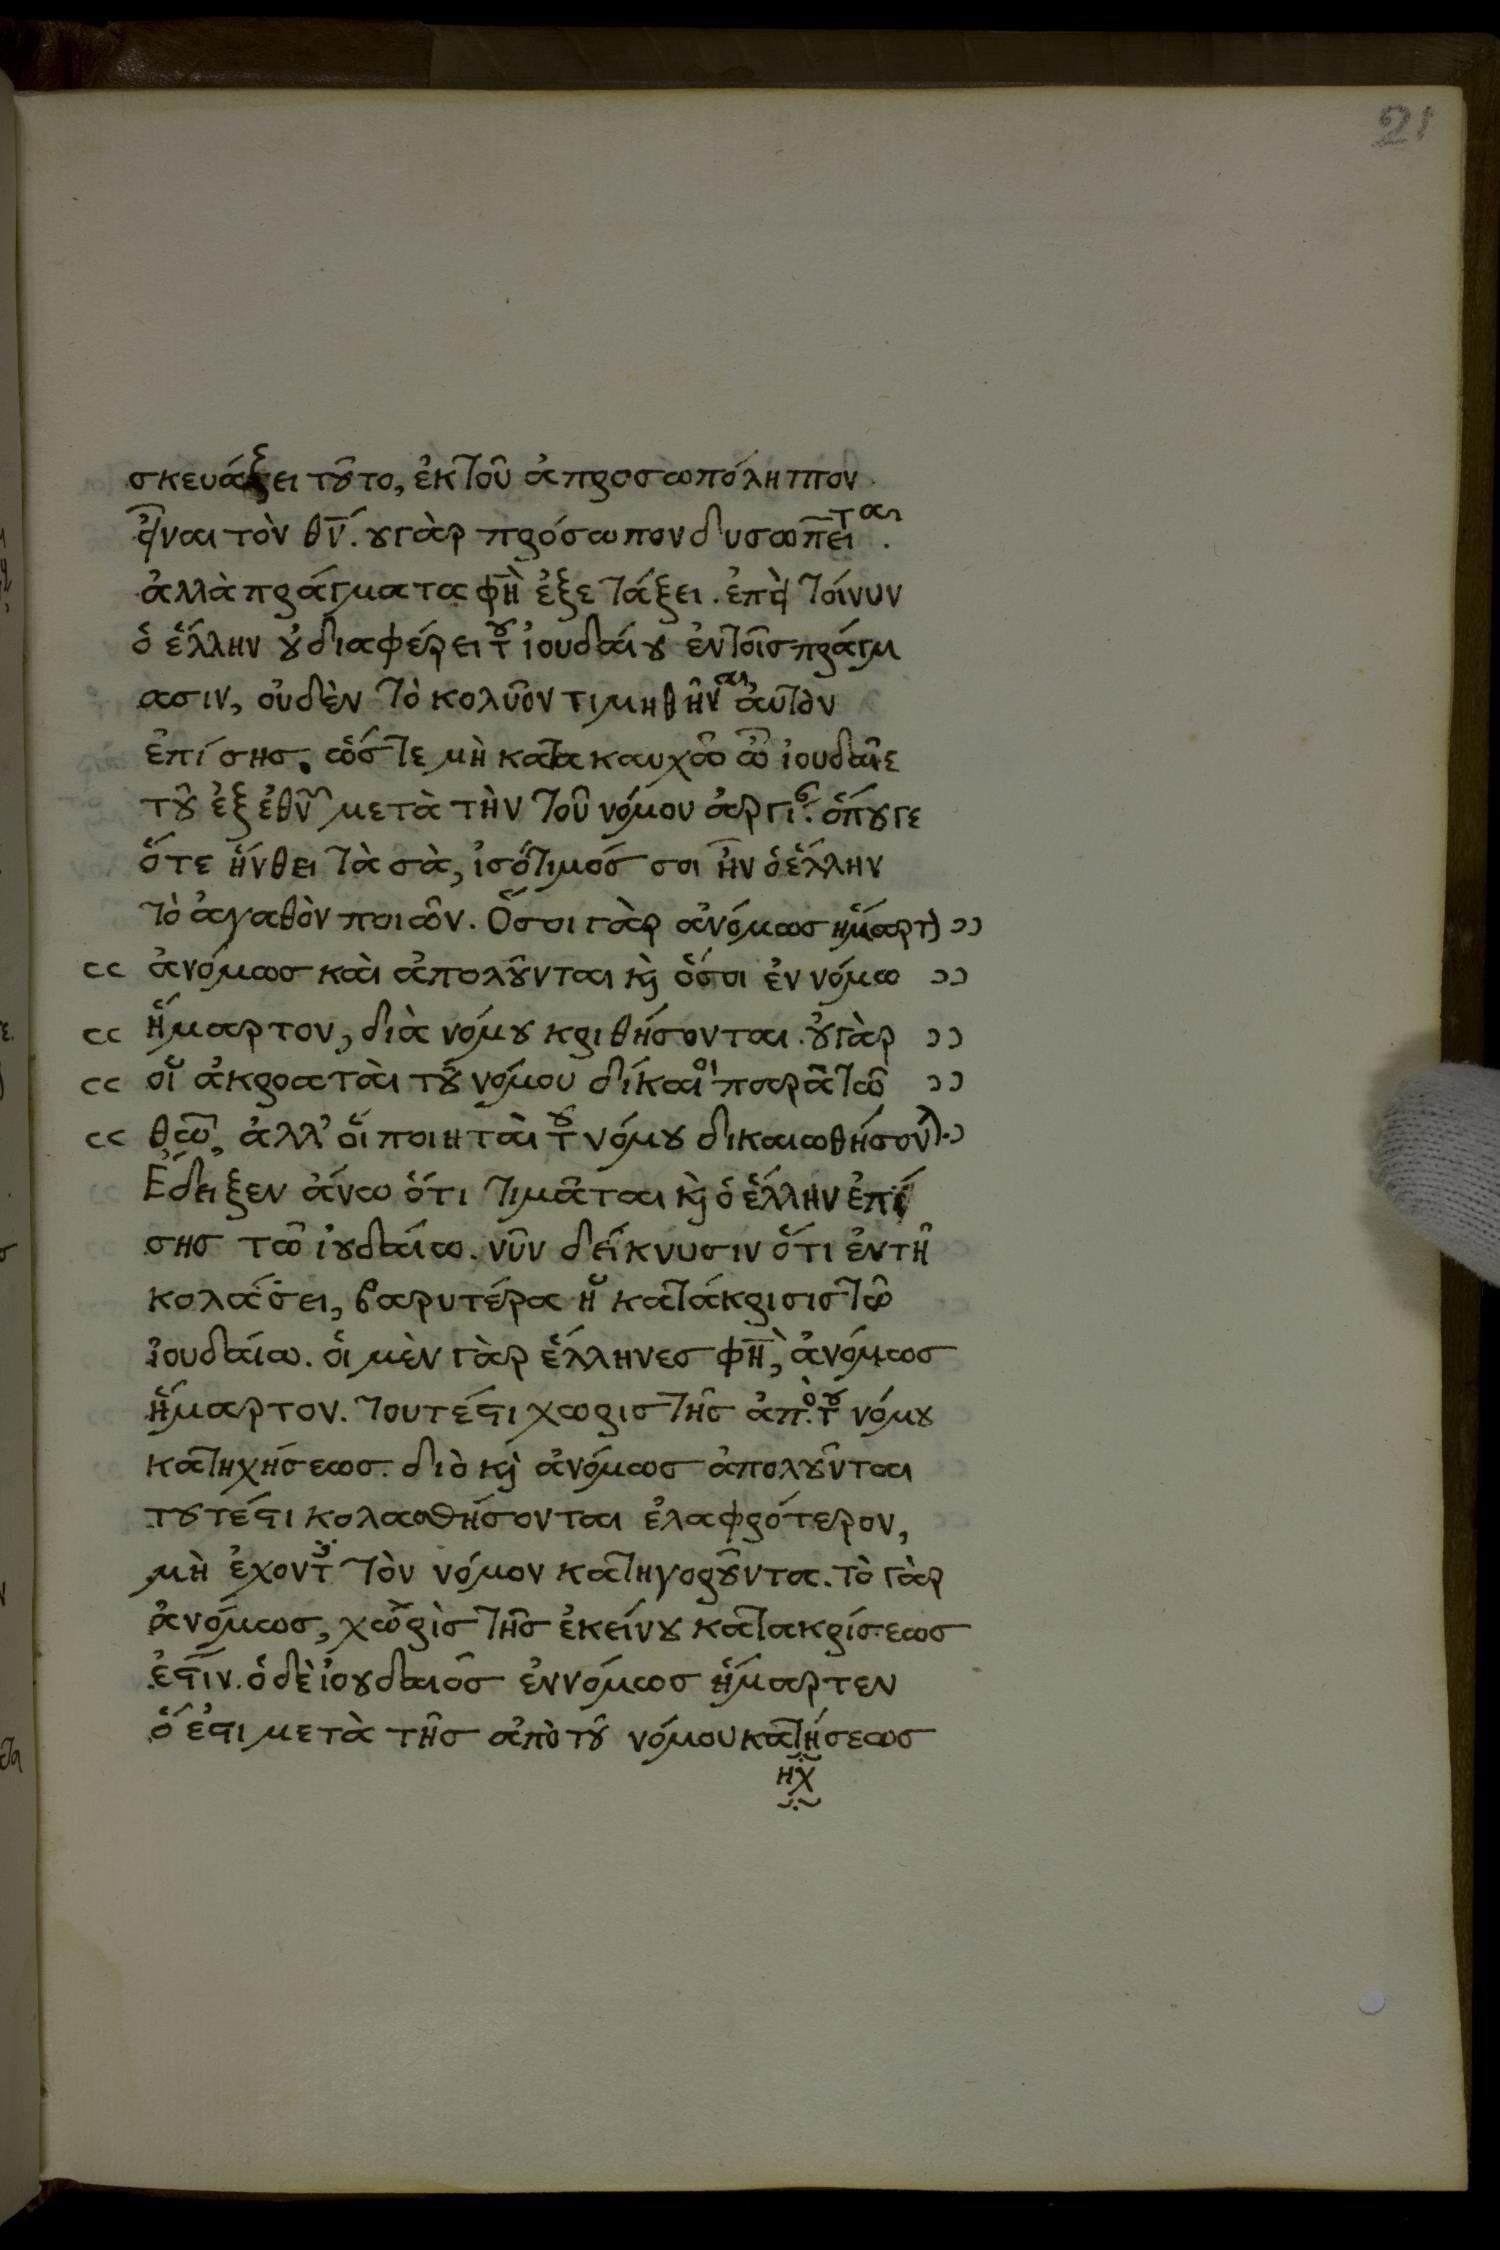 21
σκευάξει τȣ͂το, ἐκ τοῦ ἀπροσωπόληπτον
εἶναι τὸν θν̅. ȣ γὰρ πρόσωπον δυσωπεῖται.
ἀλλὰ πράγματα φη̅ὶ ἐξετάξει. ἐπεὶ τοίνυν
ὁ ἕλλην ȣ̓ διαφέρει τȣ ἰουδαίȣ ἐν τοῖσ πράγμ
ασιν, οὐδὲν τὸ κολῦον τιμηθῆναι ἀυτὸν
ἐπίσησ. ὥστε μὴ κατακαυχῶ ὦ ἰουδαῖε
τȣ͂ ἐξ ἐθν͂ μετὰ τὴν τοῦ νόμου ἀργι. ὅπȣγε
ὅτε ἤνθει τὰ σὰ, ἰσότιμόσ σοι ἦν ὁ ἕλλην
τὸ ἀγαθὸν ποιῶν. Ὅσοι γὰρ ἀνόμωσ ἥμαρτ) ɔɔ
cc ἀνόμωσ καὶ ἀπολȣ͂νται κ̀ ὅσοι ἐν νόμω ɔɔ
cc ἥμαρτον, διὰ νόμȣ κριθήσονται. ȣ̓ γὰρ ɔɔ
cc οἱ ἀκροαταὶ τȣ͂ νόμου δίκαιοι παρὰ τῶ ɔɔ
cc θῶ, ἀλλ' οἱ ποιηταὶ τȣ νόμȣ δικαιωθήσον). ɔ
Ἔδειξεν ἄνω ὅτι τιμᾶται κ̀ ὁ ἕλλην ἐπί
σησ τῶ ἰȣδαίω. νῦν δείκνυσιν ὅτι ἐν τῆ
κολάσει, βαρυτέρα ἡ κατάκρισισ τῶ
ἰουδαίω. οἱ μὲν γὰρ ἕλληνεσ φη̅ὶ, ἀνόμωσ
ἥμαρτον. τουτέϛι χωρισ τῆσ ἀπὸ τȣ νόμȣ
κατηχήσεωσ. διὸ κ̀ ἀνόμωσ ἀπολȣ͂νται
τȣτέϛι κολασθήσονται ἐλαφρότερον,
μὴ ἔχοντ τὸν νόμον κατηγορȣ͂ντα. τὸ γὰρ
ἀνόμωσ, χωρὶσ τῆσ ἐκείνȣ κατακρίσεωσ
ἐϛίν. ὁ δὲ ἰȣδαιοσ ἐννόμωσ ἥμαρτεν
ὅ ἐϛι μετὰ τῆσ ἀπὸ τȣ͂ νόμου κατήσεωσ
ηχ